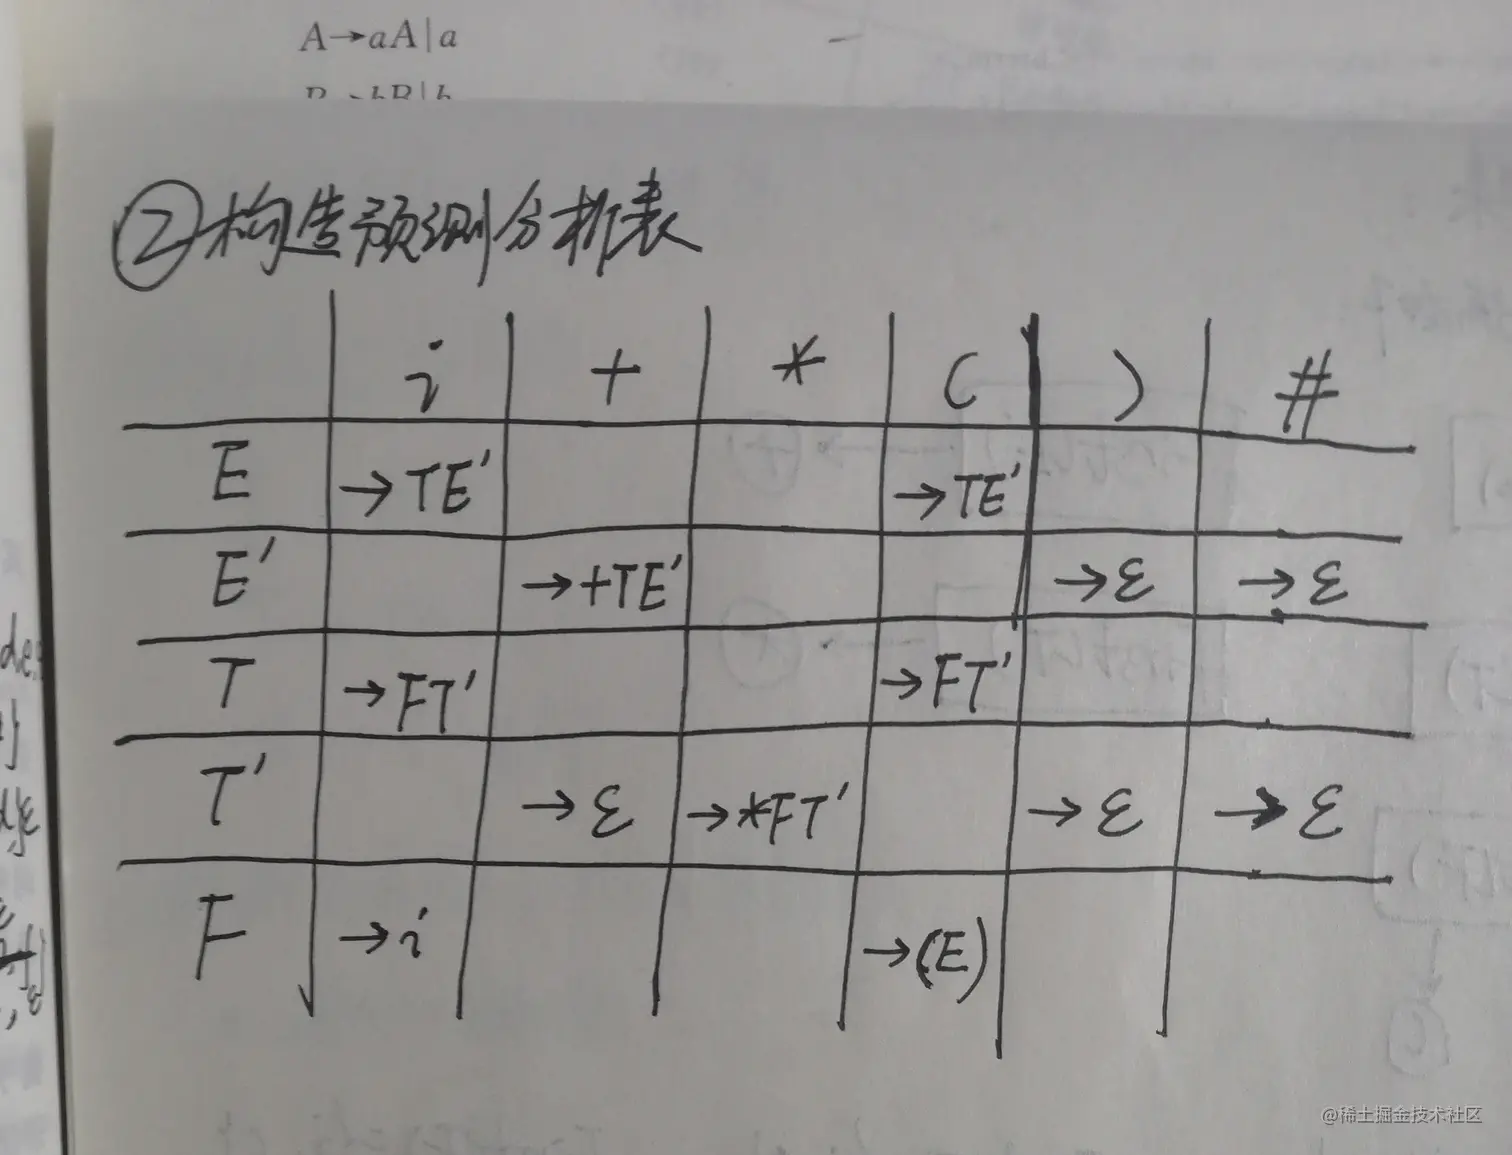 A→aA|a
B→bB|b
②构造预测分析表
i + * ( ) #
E →TE′ →TE′
E′ →+TE′ →ε →ε
T →FT′ →FT′
T′ →ε →*FT′ →ε →ε
F →i →(E)
@稀土掘金技术社区